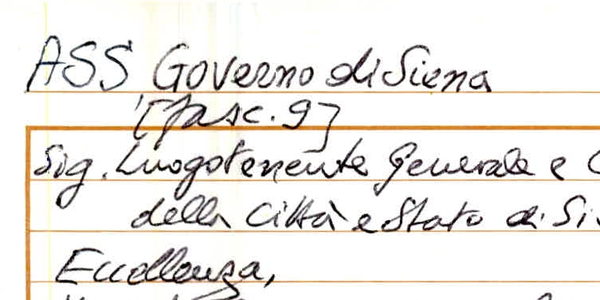 ASS Governo di Siena
[fasc. 9]
Sig. Luogotenente Generale e
della Città e Stato di
Eccellenza,